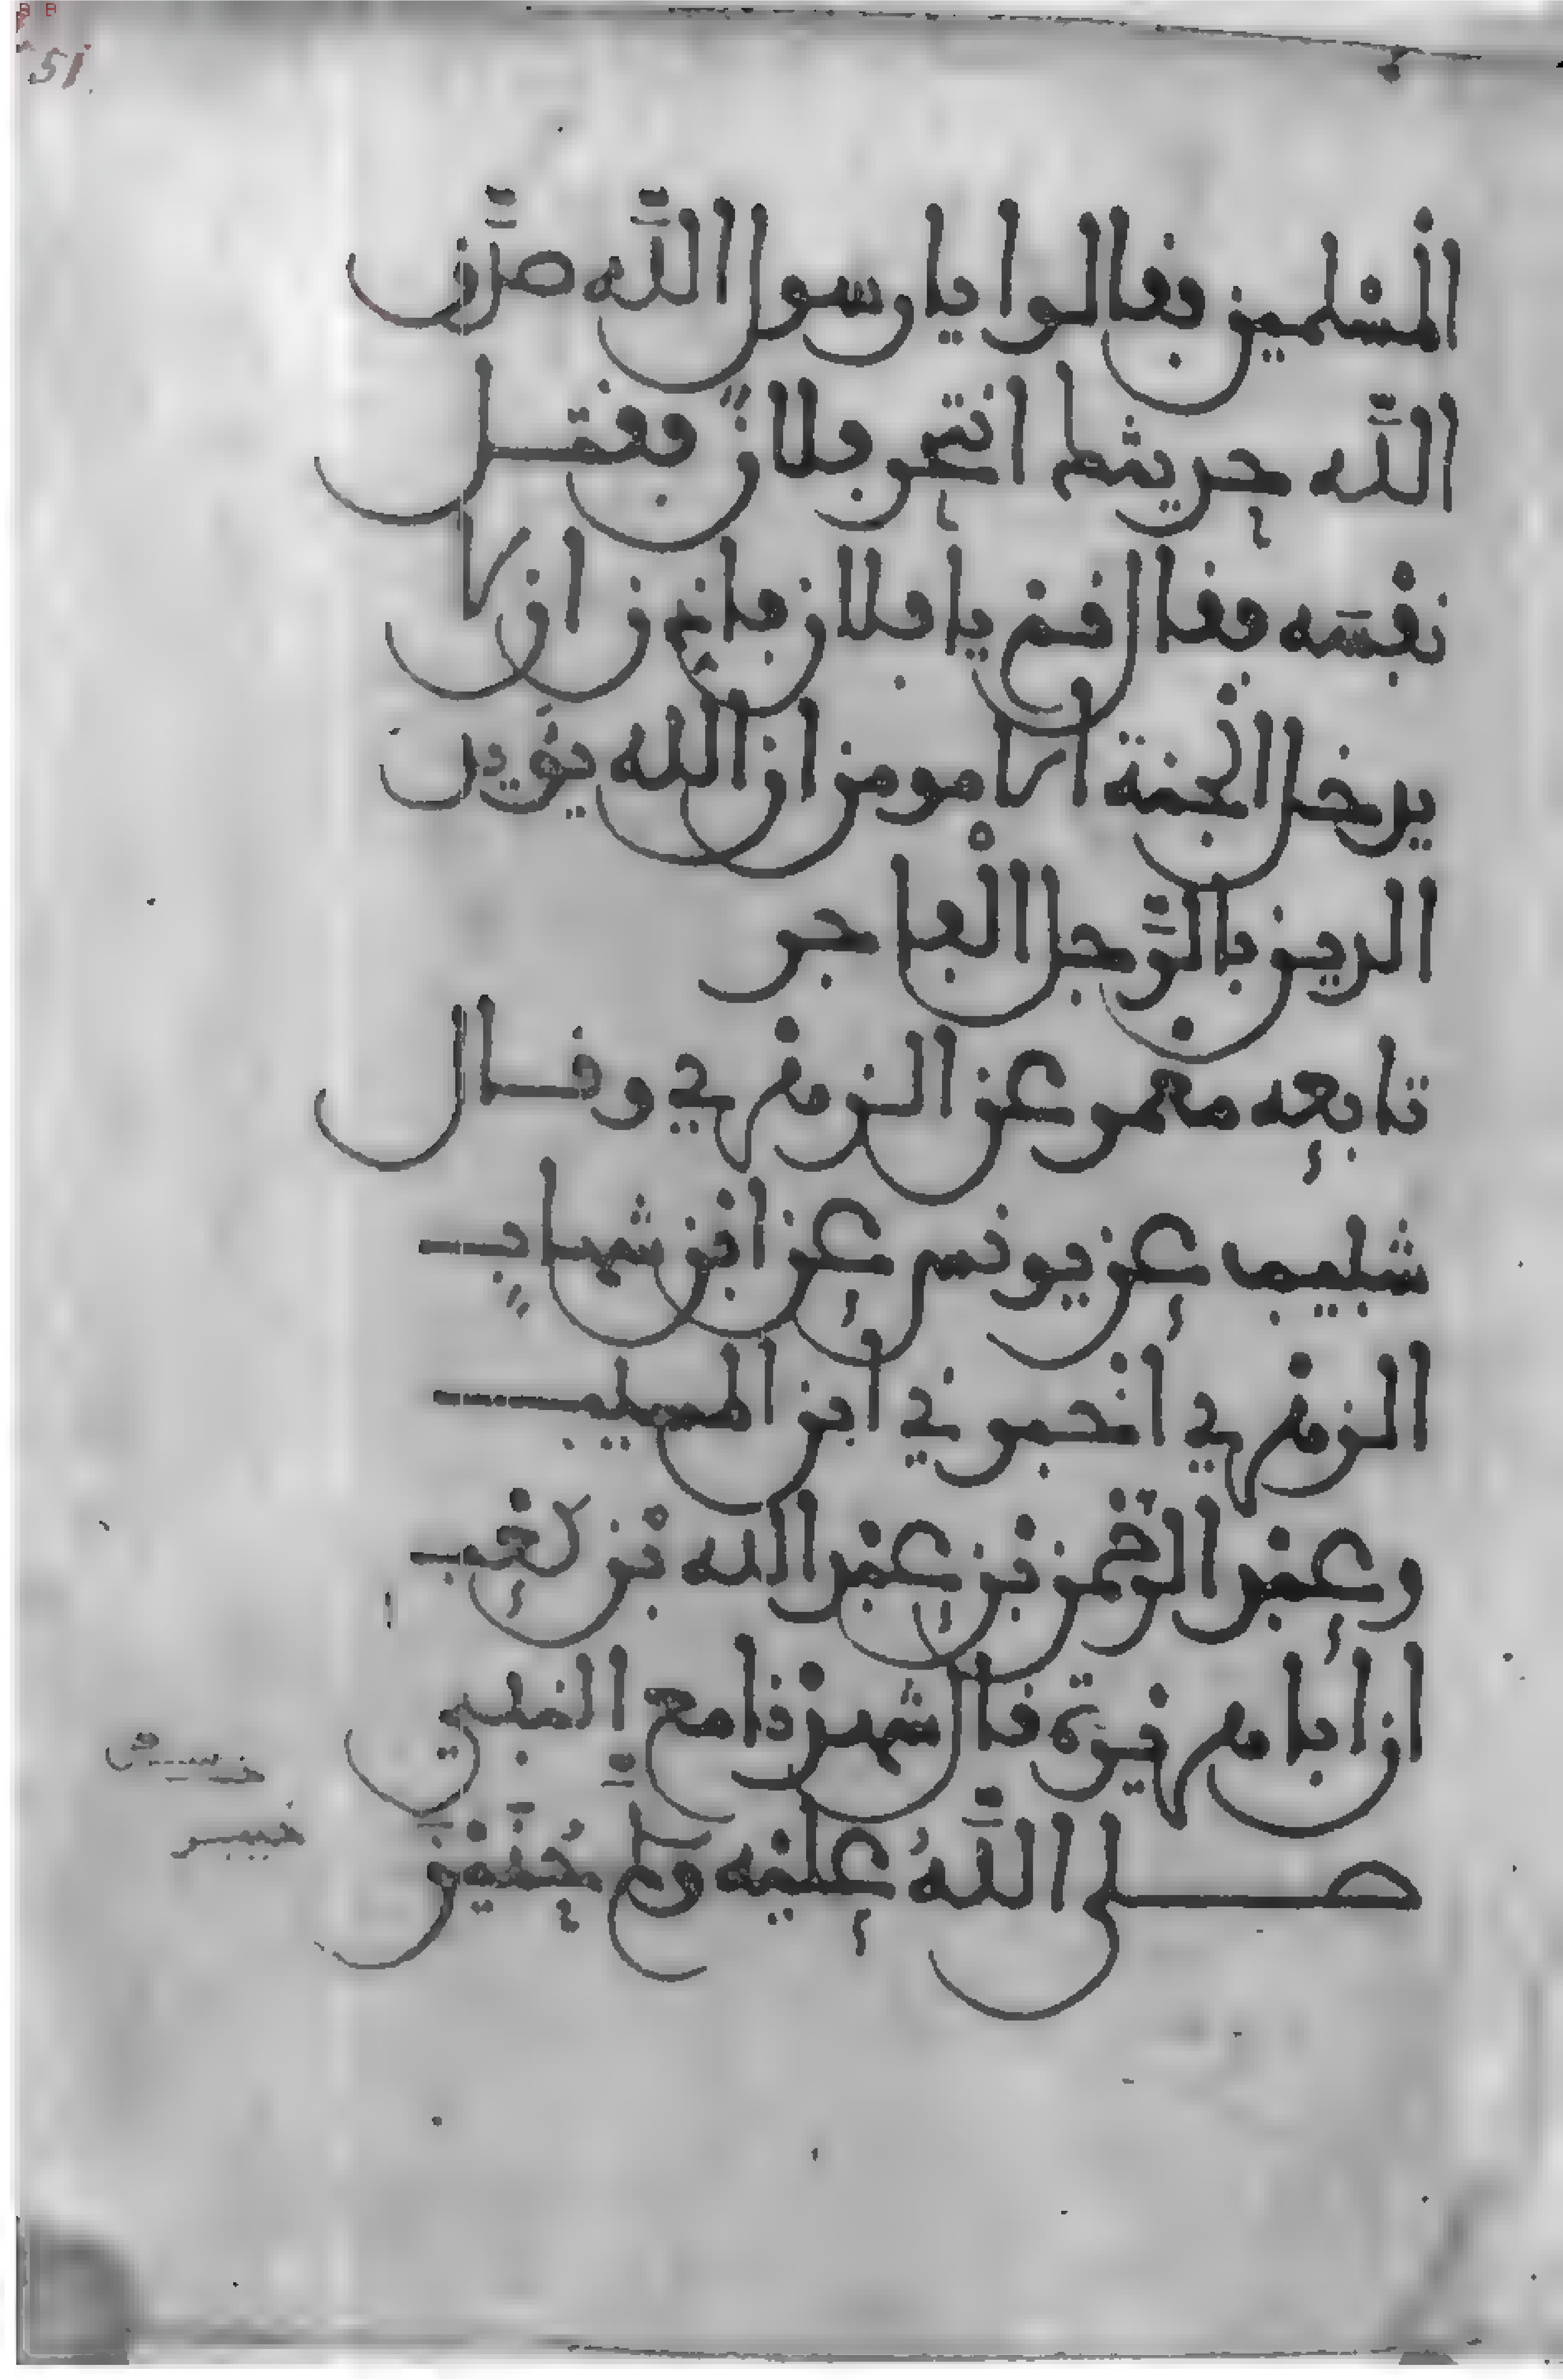 51
المسلمين فقالوا يا رسول الله صدق
الله حديثك انتحر فلان فقتل
نفسه فقال قم يا فلان فاذن ان لا
يدخل الجنة الا مومن ان الله يؤيد
الدين بالرجل الفاجر
تابعه معمر عن الزهري وقال
شبيب عن يونس عن ابن شهاب
الزهري اخبرني ابن المسيب
وعبد الرحمن بن عبد الله بن كعب
ان ابا هريرة قال شهدنا مع النبي
صلى الله عليه وسلم حنين
خيبر